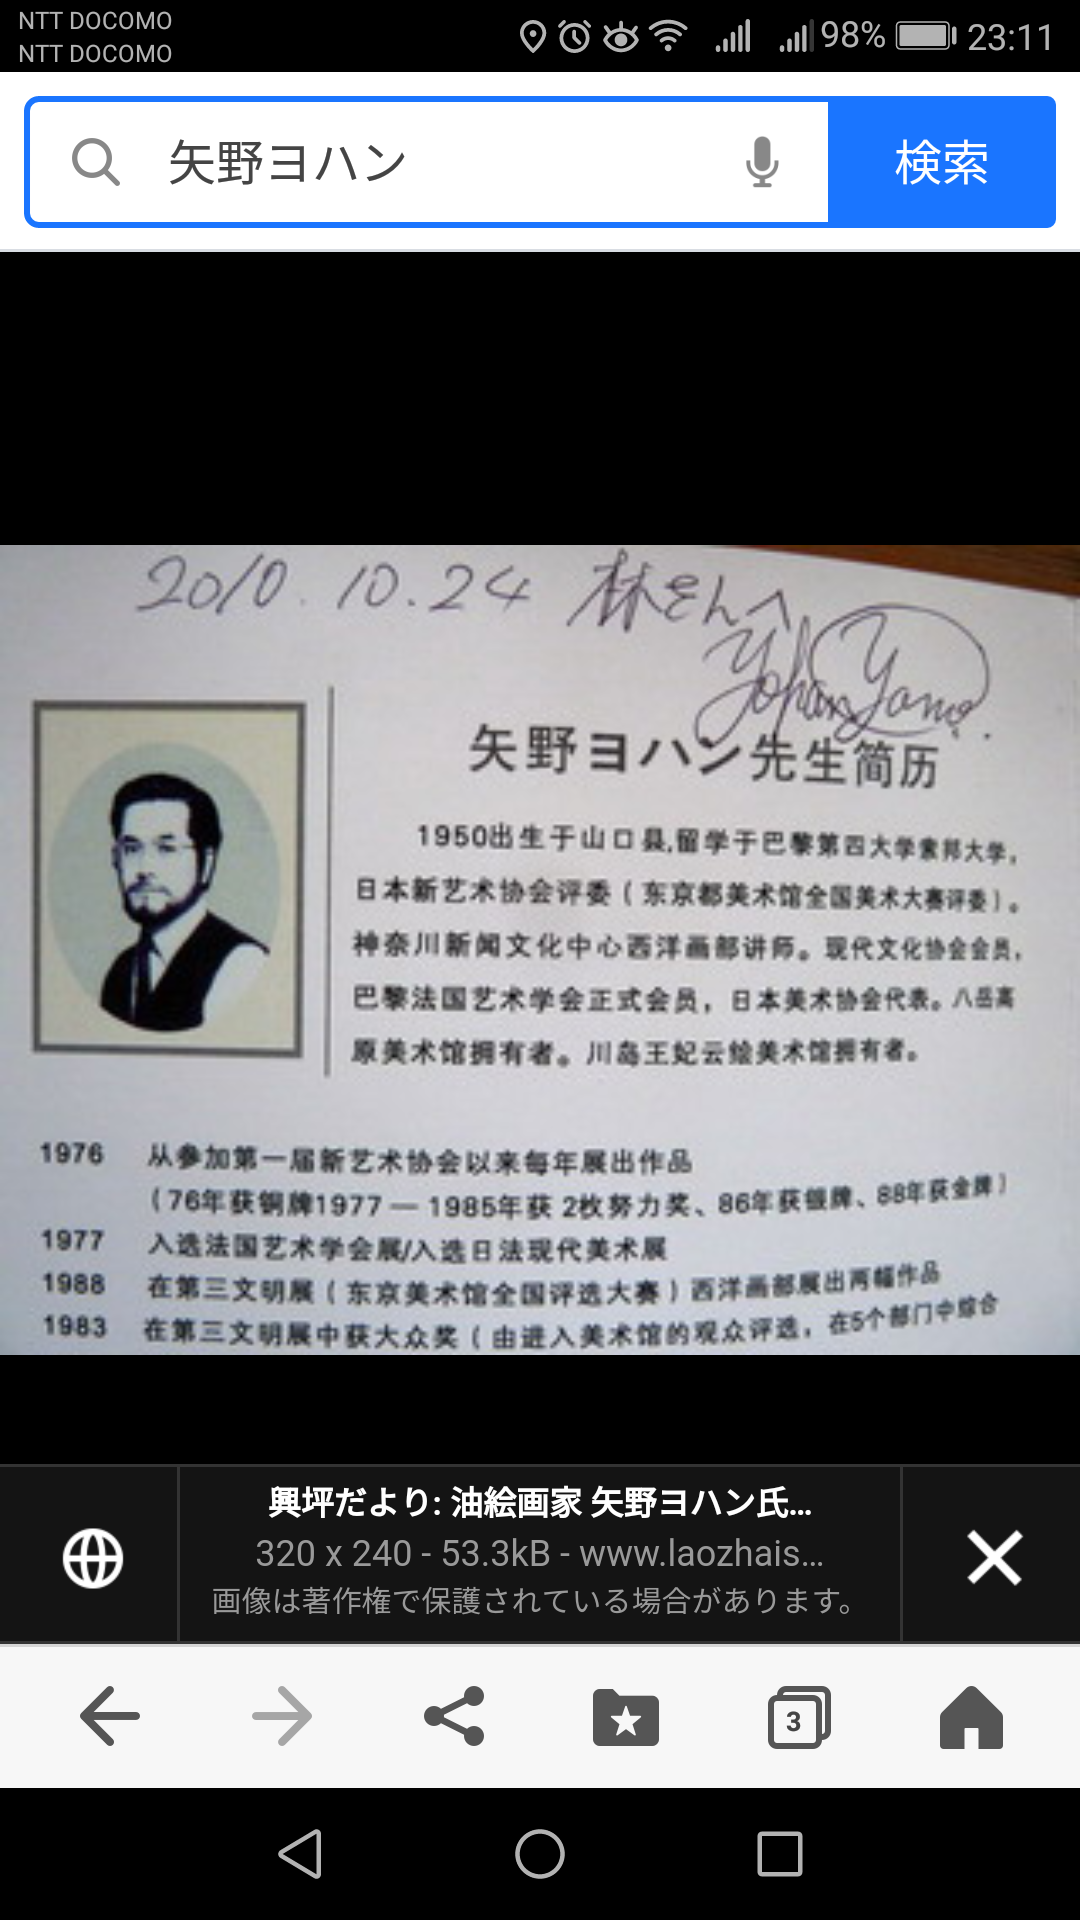 NTT DOCOMO
NTT DOCOMO
98% 23:11
矢野ヨハン 検索
2010.10.24 林さんへ
Yohan Yano
矢野ヨハン先生简历
1950出生于山口县,留学于巴黎第四大学索邦大学,
日本新艺术协会评委(东京都美术馆全国美术大赛评委)。
神奈川新闻文化中心西洋画部讲师。现代文化协会会员,
巴黎法国艺术学会正式会员，日本美术协会代表。八岳高
原美术馆拥有者。川岛王妃云绘美术馆拥有者。
1976 从参加第一届新艺术协会以来每年展出作品
(76年获铜牌1977 — 1985年获 2枚努力奖、86年获银牌、88年获金牌)
1977 入选法国艺术学会展/入选日法现代美术展
1988 在第三文明展(东京美术馆全国评选大赛)西洋画部展出两幅作品
1983 在第三文明展中获大众奖(由进入美术馆的观众评选，在5个部门中综合
興坪だより: 油絵画家 矢野ヨハン氏...
320 x 240 - 53.3kB - www.laozhais...
画像は著作権で保護されている場合があります。
3